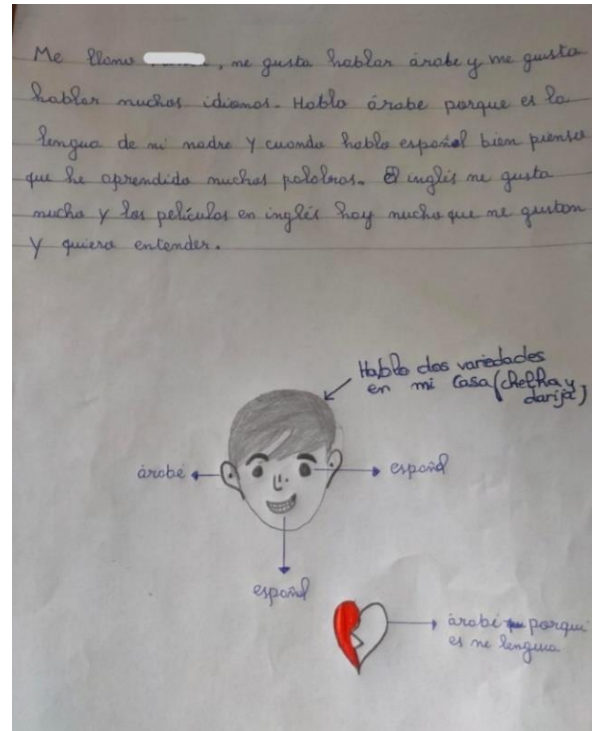 Me llamo , me gusta hablar árabe y me gusta
hablar muchos idiomas. Hablo árabe porque es la
lengua de mi madre Y cuando hablo español bien pienso
que he aprendido muchas palabras. El inglés me gusta
mucho y las películas en inglés hay mucho que me gustan
Y quiero entender.
Hablo dos variedades
en mi casa (chelha y
darija)
árabe
español
español
árabe porque
es me lengua